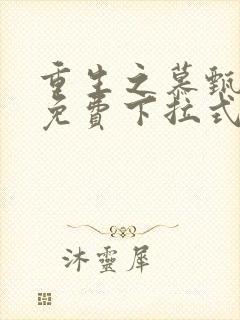 重生之慕甄
免費下拉式
沐靈犀